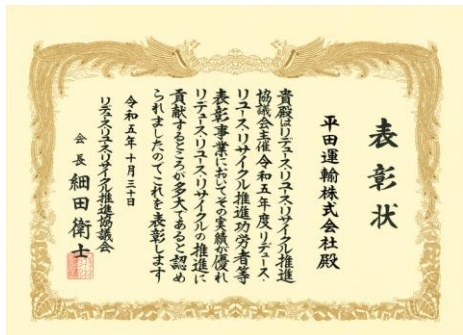 表彰状
平田運輸株式会社殿
貴殿はリデュース・リユース・リサイクル推進
協議会主催令和五年度リデュース・
リユース・リサイクル推進功労者等
表彰事業においてその実績が優れ
リデュース・リユース・リサイクルの推進に
貢献するところが多大であると認め
られましたのでこれを表彰します
令和五年十月三十日
リデュース・リユース・リサイクル推進協議会
会長 細田衛士